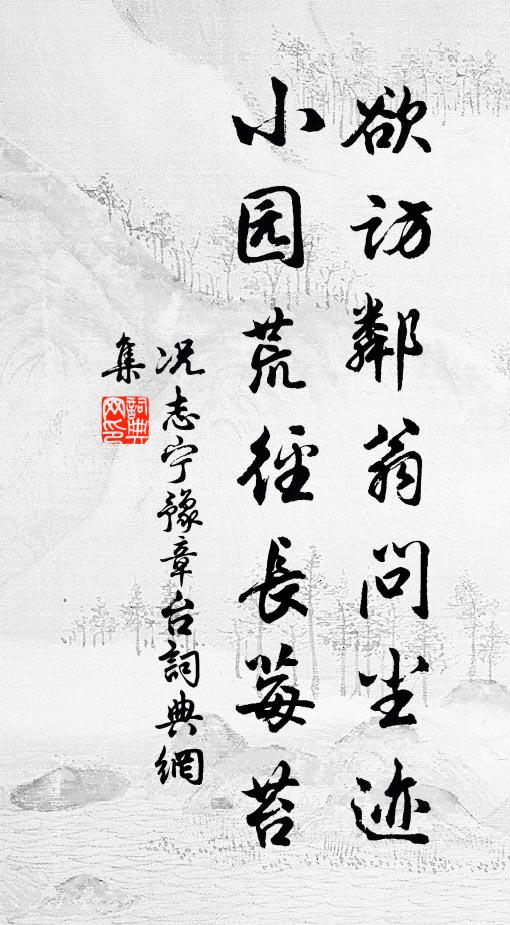 欲访鄰翁问尘迹
小园荒径長莓苔
况志宁豫章台詞典網
集
詞典网印